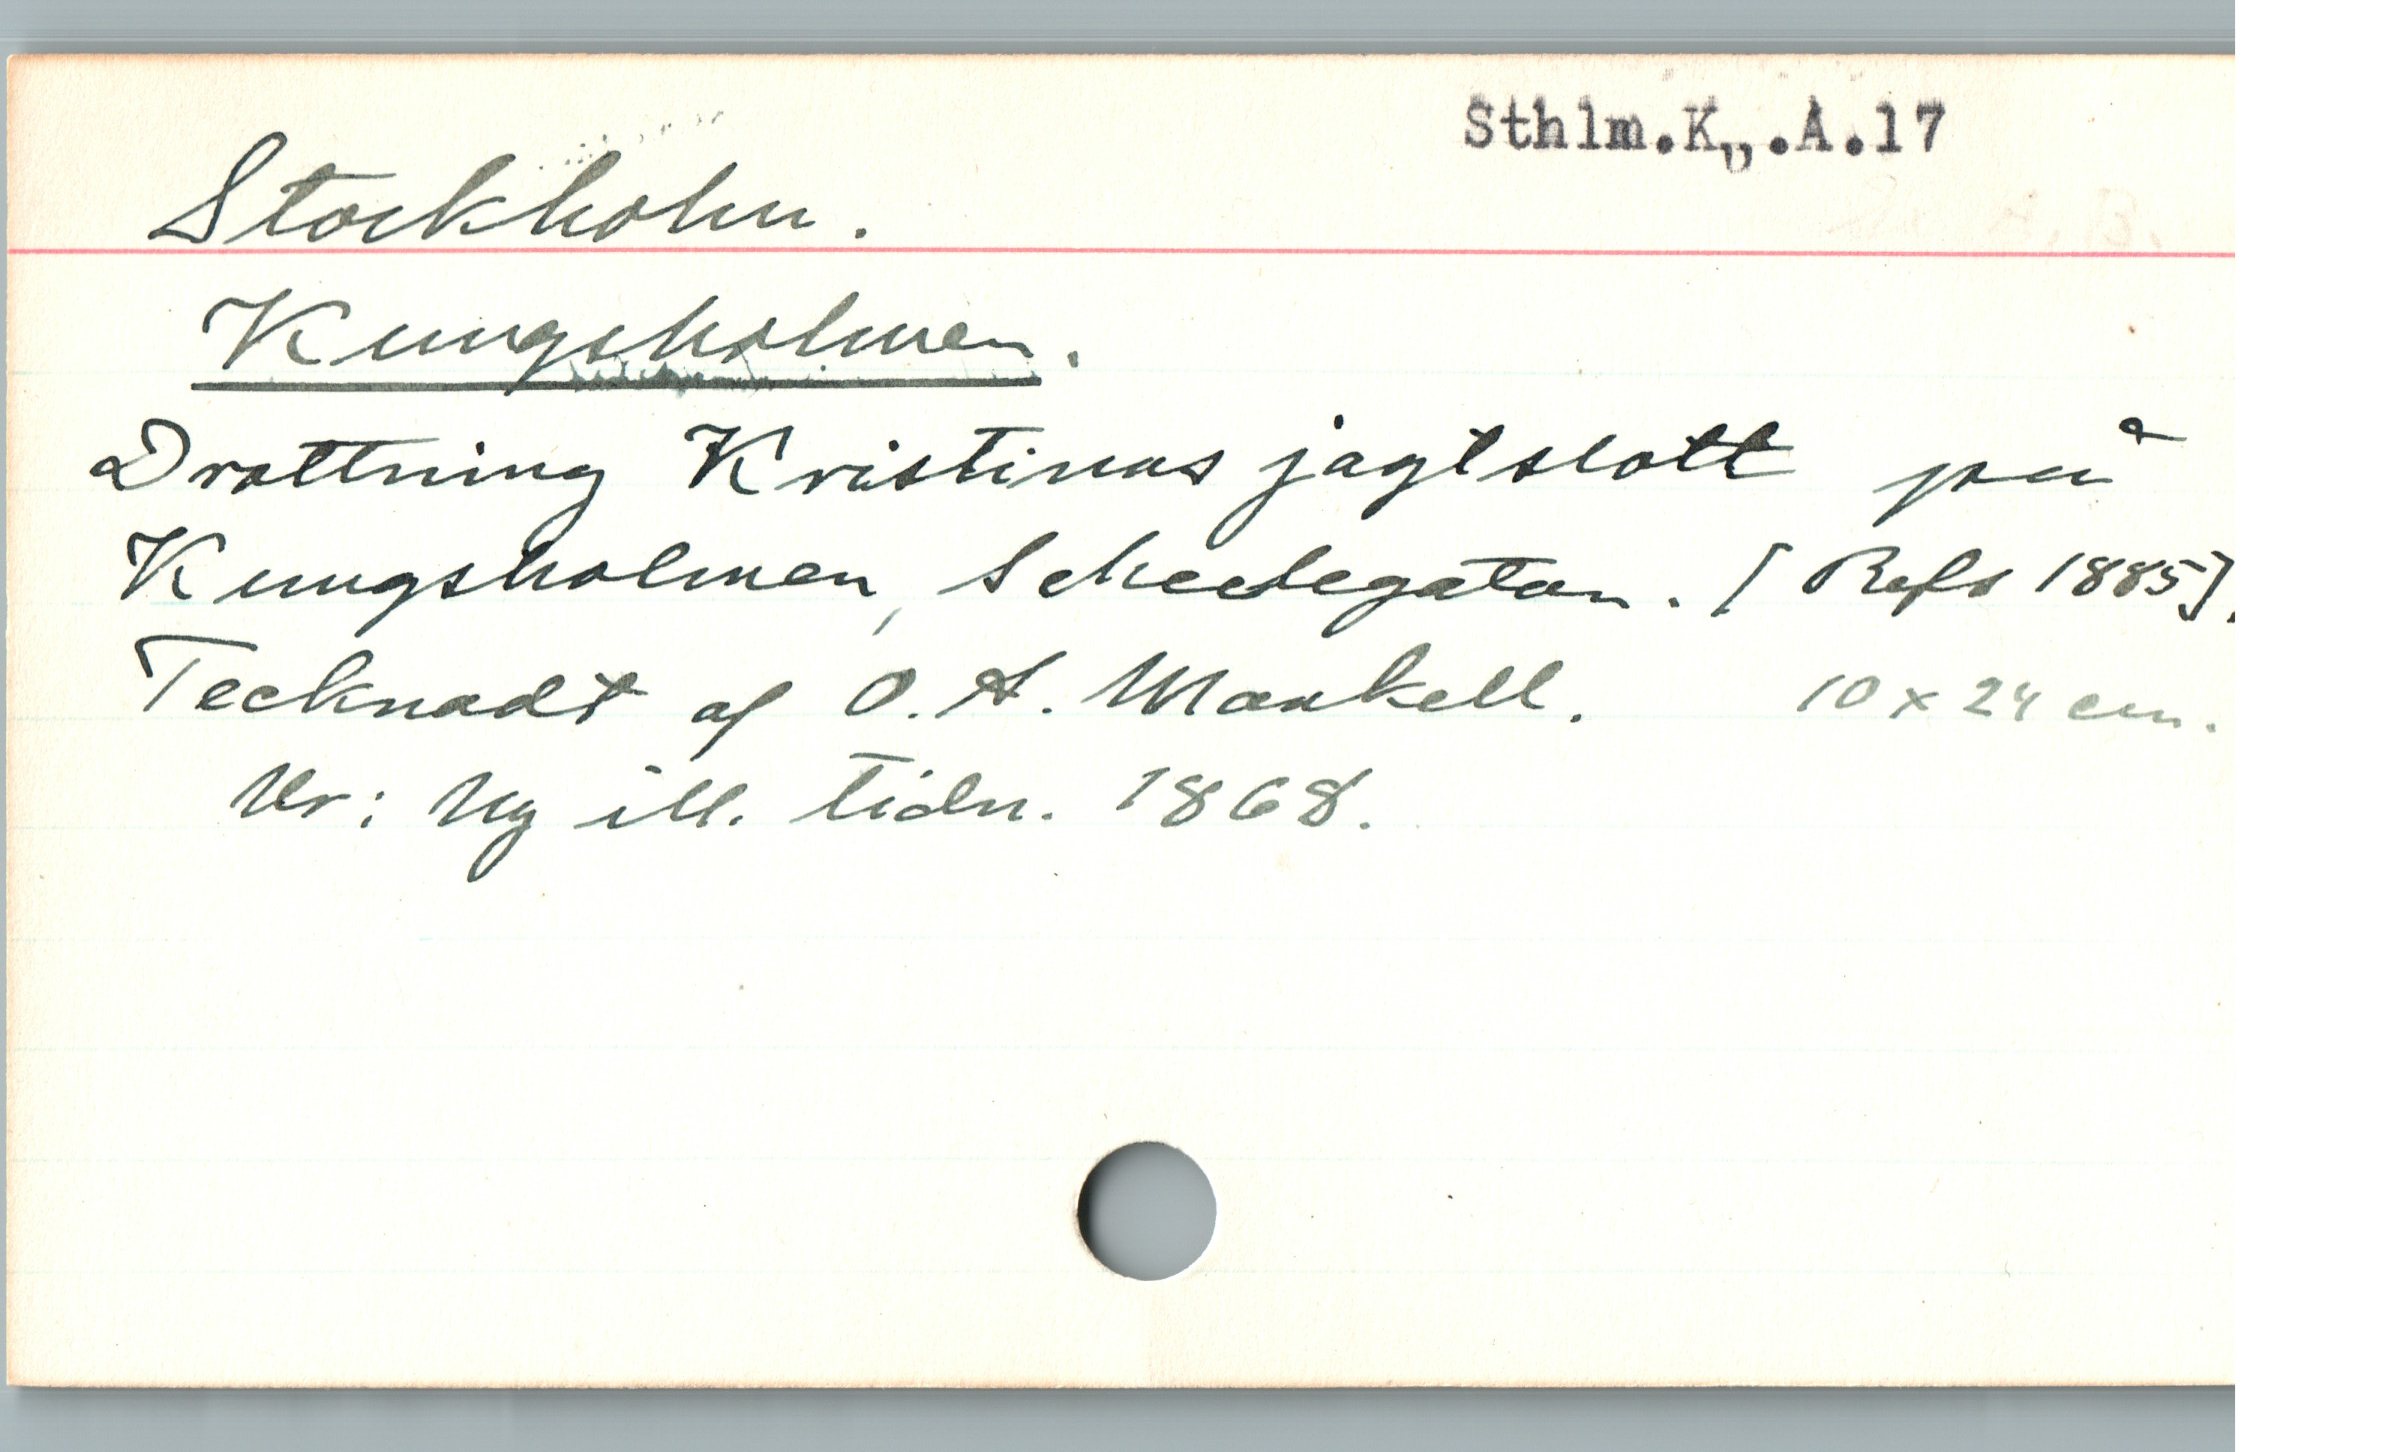 Sthlm.K„.A.17
Stockholm.
Kungsholmen.
Drottning Kristinas jagtslott på
Kungsholmen, Scheelegatan. [Refs 1885].
Tecknadt af O. A. Mankell. 10 x 24 cm.
Ur: Ny ill. tidn. 1868.